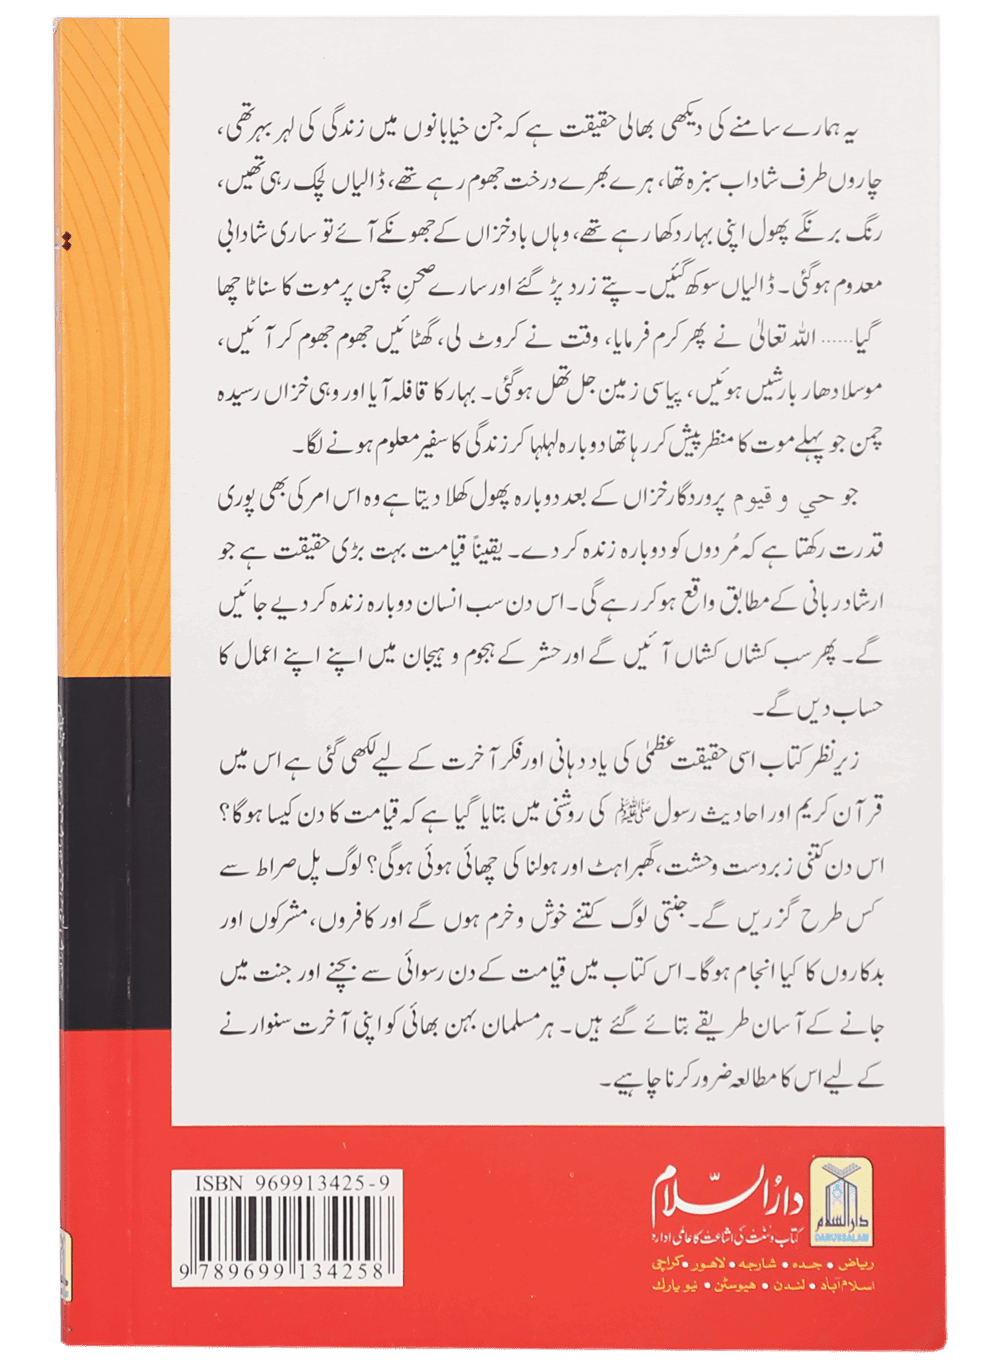 یہ ہمارے سامنے کی دیکھی بھالی حقیقت ہے کہ جن خیابانوں میں زندگی کی لہر بہر تھی،
چاروں طرف شاداب سبزہ تھا، ہرے بھرے درخت جھوم رہے تھے، ڈالیاں لچک رہی تھیں،
رنگ برنگے پھول اپنی بہار دکھا رہے تھے، وہاں باد خزاں کے جھونکے آئے تو ساری شادابی
معدوم ہو گئی۔ ڈالیاں سوکھ گئیں۔ پتے زرد پڑ گئے اور سارے صحنِ چمن پر موت کا سناٹا چھا
گیا...... اللہ تعالیٰ نے پھر کرم فرمایا، وقت نے کروٹ لی، گھٹائیں جھوم جھوم کر آئیں،
موسلا دھار بارشیں ہوئیں، پیاسی زمین جل تھل ہو گئی۔ بہار کا قافلہ آیا اور وہی خزاں رسیدہ
چمن جو پہلے موت کا منظر پیش کر رہا تھا دوبارہ لہلہا کر زندگی کا سفیر معلوم ہونے لگا۔
جو حي و قيوم پروردگار خزاں کے بعد دوبارہ پھول کھلا دیتا ہے وہ اس امر کی بھی پوری
قدرت رکھتا ہے کہ مُردوں کو دوبارہ زندہ کر دے۔ یقیناً قیامت بہت بڑی حقیقت ہے جو
ارشاد ربانی کے مطابق واقع ہو کر رہے گی۔ اس دن سب انسان دوبارہ زندہ کر دیے جائیں
گے۔ پھر سب کشاں کشاں آئیں گے اور حشر کے ہجوم و ہیجان میں اپنے اپنے اعمال کا
حساب دیں گے۔
زیر نظر کتاب اسی حقیقت عظمیٰ کی یاد دہانی اور فکر آخرت کے لیے لکھی گئی ہے اس میں
قرآن کریم اور احادیث رسول ﷺ کی روشنی میں بتایا گیا ہے کہ قیامت کا دن کیسا ہوگا؟
اس دن کتنی زبردست وحشت، گھبراہٹ اور ہولنا کی چھائی ہوئی ہوگی؟ لوگ پل صراط سے
کس طرح گزریں گے۔ جنتی لوگ کتنے خوش و خرم ہوں گے اور کافروں، مشرکوں اور
بدکاروں کا کیا انجام ہوگا۔ اس کتاب میں قیامت کے دن رسوائی سے بچنے اور جنت میں
جانے کے آسان طریقے بتائے گئے ہیں۔ ہر مسلمان بہن بھائی کو اپنی آخرت سنوارنے
کے لیے اس کا مطالعہ ضرور کرنا چاہیے۔
ISBN 969913425-9
9 789699 134258
دارُالسّلام
کتاب و سنّت کی اشاعت کا عالمی ادارہ
ریاض • جدہ • شارجہ • لاهور • کراچی
اسلام آباد • لندن • هیوسٹن • نیو یارك
دارالسلام
DARUSSALAM